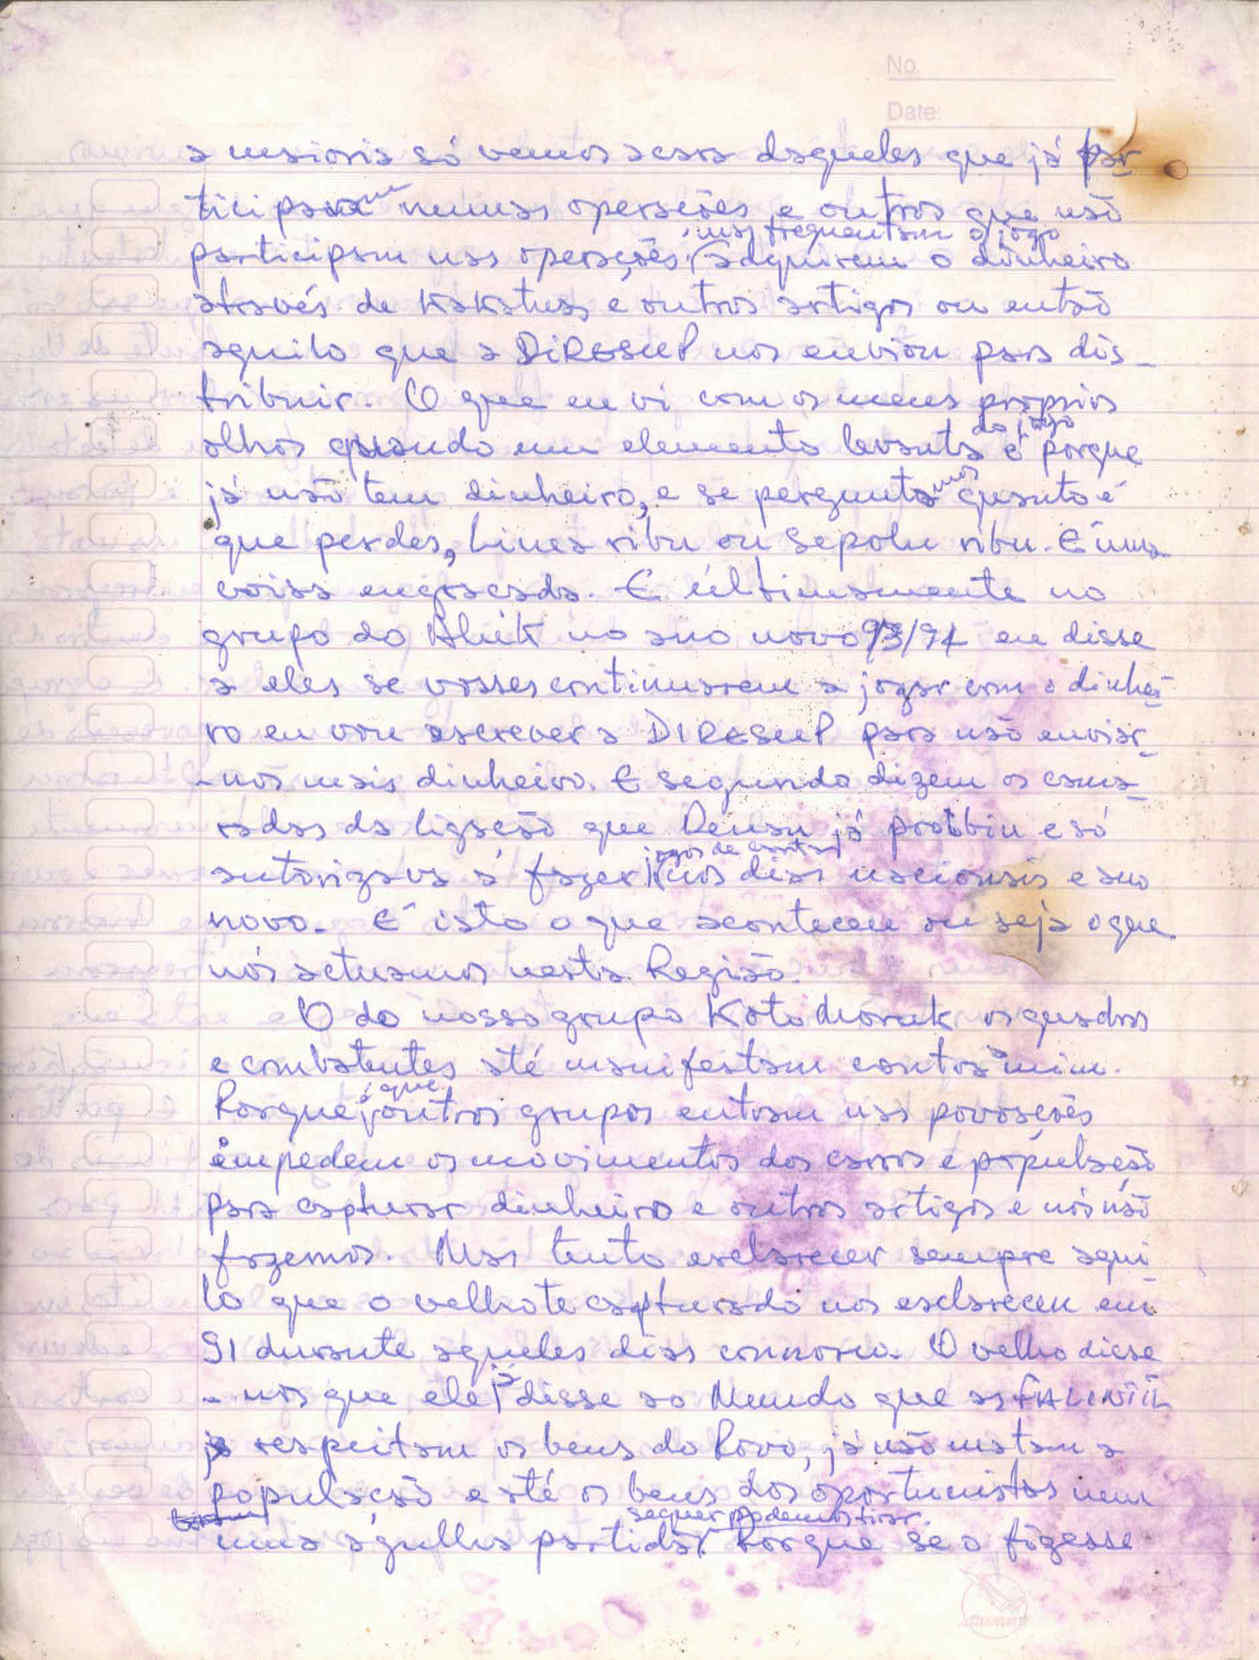 No.
Date:
a maioria só vemos a cara daqueles que já par
ticiparam numas operações e outros que não
participam nas operações, mas frequentam o jogo adquirem o dinheiro
através de Kakatuas e outros artigos ou então
aquilo que a DIRESUP nos enviou para dis-
tribuir. O que eu vi com os meus proprios
olhos quando um elemento levanta do jogo é porque
já não tem dinheiro, e se perguntamos quanto é
que perdes, Lima ribu ou Sepolu ribu. É uma
coisa engraçada. E últimamente no
grupo do no ano novo 93/94 eu disse
a eles se vosses continuarem a jogar com o dinhei
ro eu vou escrever a DIRESUP para não enviar
-nos mais dinheiro. E segundo dizem os cama
radas da ligação que já proibiu e só
autorizava a fazer jogos de cartas nos dias nacionais e ano
novo. É isto o que aconteceu ou seja o que
nós actuamos nesta Região.
O do nosso grupo os quadros
e combatentes até manifestam contra mim.
Porque, que outros grupos entram nas povoações
empedem os movimentos dos carros e população
para capturar dinheiro e outros artigos e nós não
fazemos. Mas tento esclarecer sempre aqui
lo que o velhote capturado nos esclareceu em
91 durante aqueles dias connosco. O velho disse
-nos que ele já disse ao Mundo que as FALINTIL
já respeitam os bens do Povo, já não matam a
população e até os bens dos oportunistas nem
uma agulha partida sequer podemos tirar. Porque se o fizesse